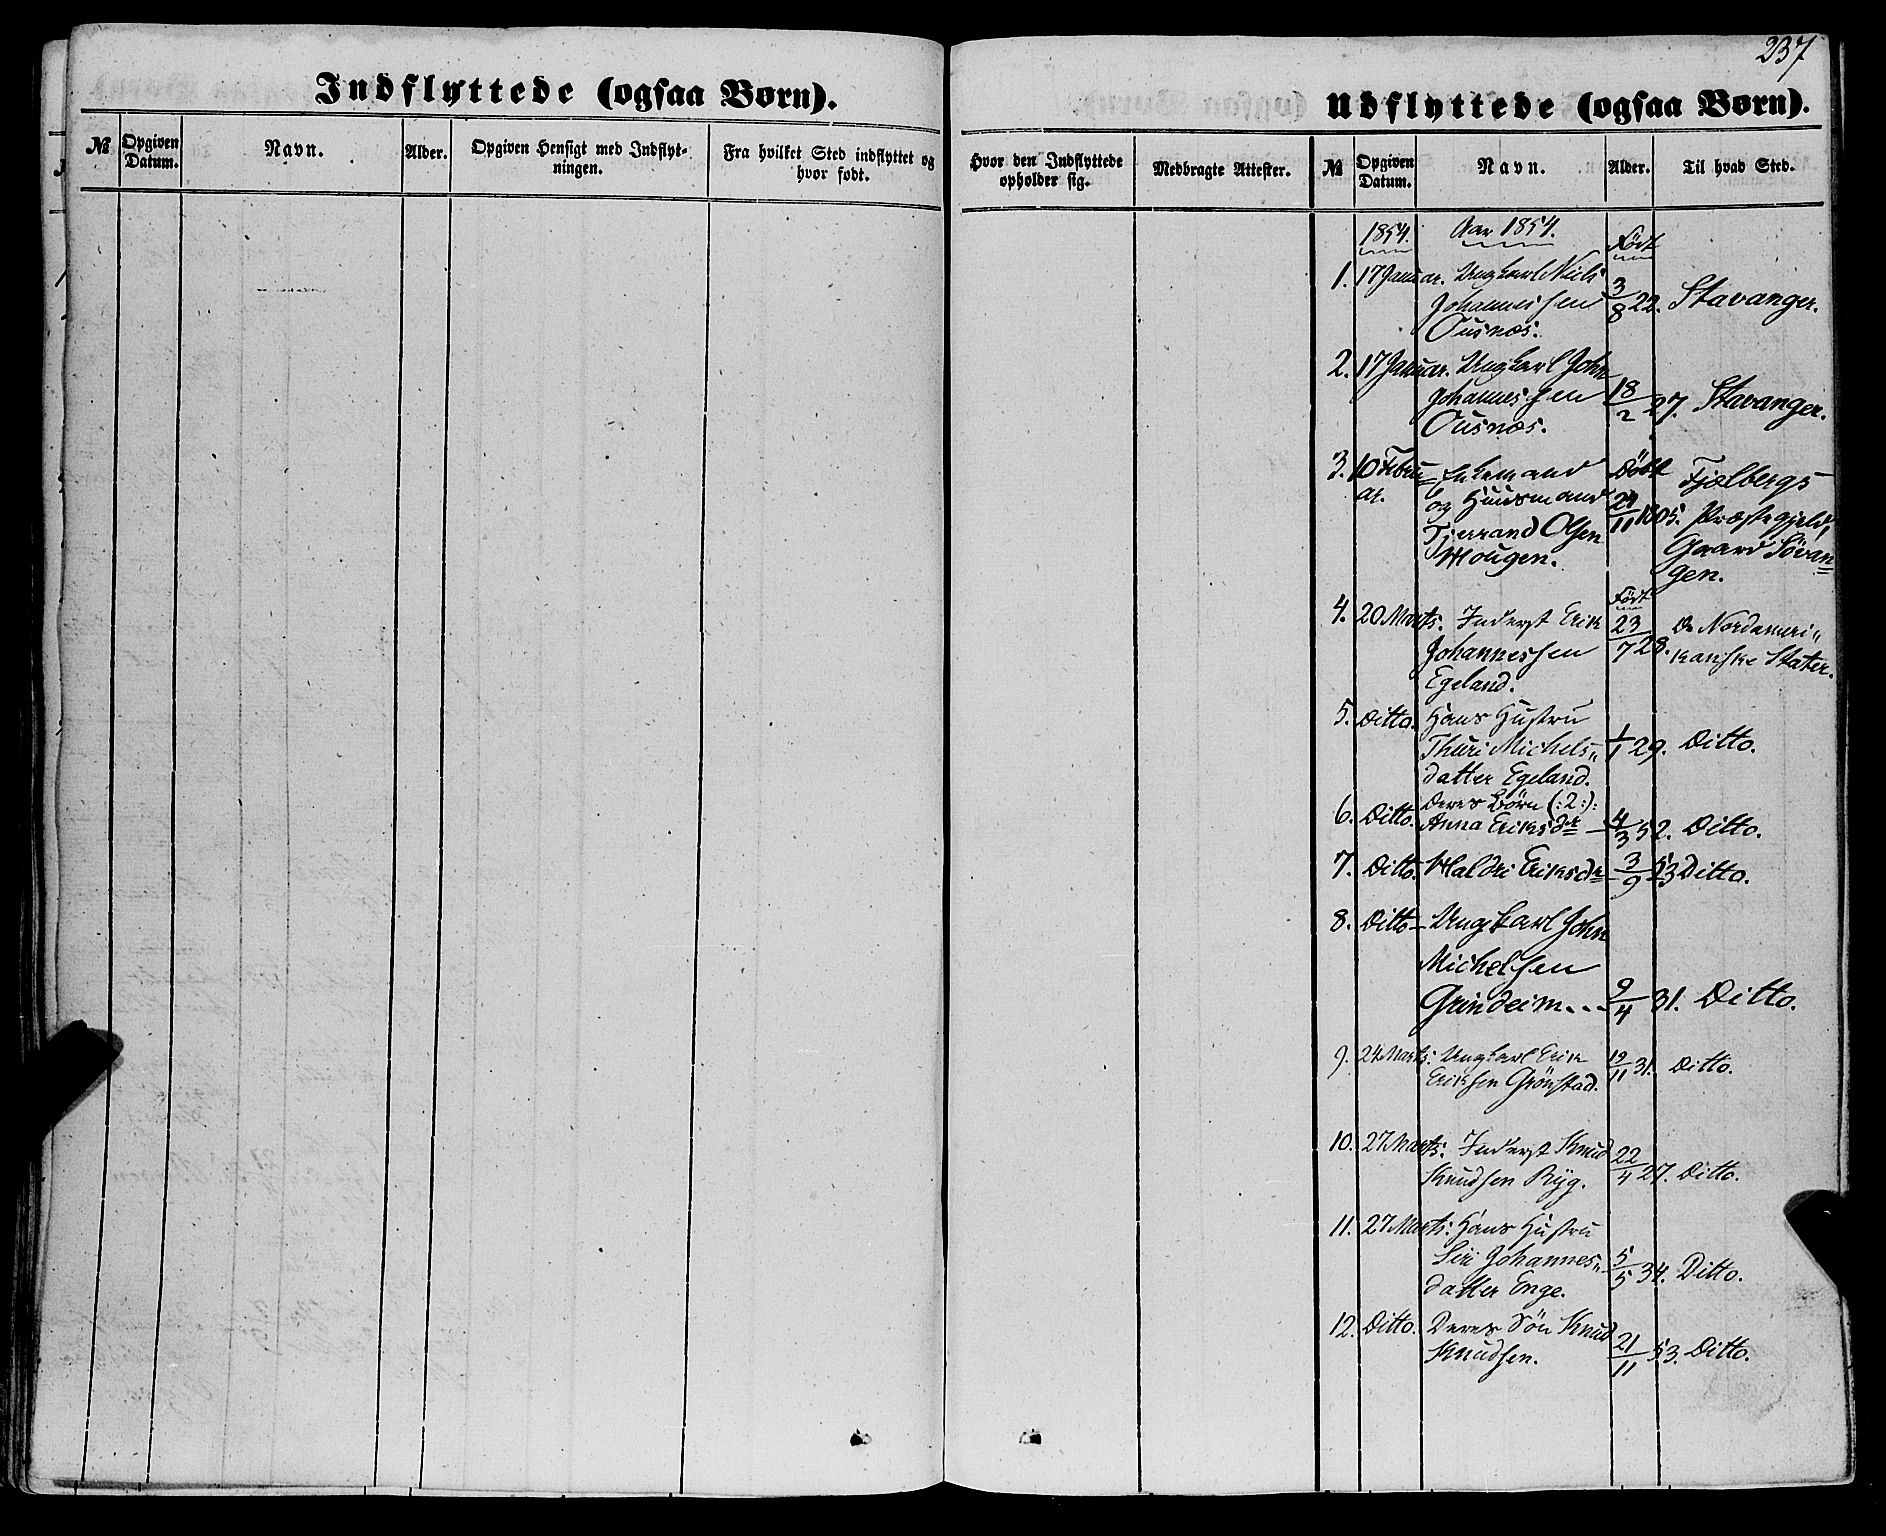 237
Indflyttede (ogsaa Børn).
Udflyttede (ogsaa Børn).
№ Opgiven Datum. Navn. Alder. Opgiven Hensigt med Indflyt-
ningen. Fra hvilket Sted indflyttet og
hvor født.
Hvor den Indflyttede
opholder sig. Medbragte Attester. № Opgiven Datum. Navn. Alder. Til hvad Sted.
1854. Aar 1854. Født
1. 17 Januar. Ungkarl Niels
Johannessen 3/8 22. Stavanger.
Ousnæs.
2. 17 Januar. Ungkarl John
Johannessen 18/2 27. Stavanger.
Ousnæs.
3. 10 Febru= Enkemand Döbt Fjælbergs
ar. og Huusmand 24/11 1805. Præstegjeld,
Tjerrand Olsen Gaard Sövan=
Hougen. gen.
Født
4. 20 Marts. Inderst Erik 23/7 28. De Nordameri„
Johannessen kanske Stater.
Egeland.
5. Ditto. Hans Hustru
Thuri Michels„ 1/1 29. Ditto.
datter Egeland.
Deres Börn (:2:):
6. Ditto. Anna Eriksdr 4/3 52. Ditto.
7. Ditto. Haldri Eriksdr 3/9 53 Ditto.
8. Ditto Ungkarl John
Michelsen
Grindeim... 9/4 31. Ditto.
9. 24 Marts. Ungkarl Erik 19/11 31. Ditto.
Eriksen Grönstad.
10. 27 Marts. Inderst Knud 22/4 27. Ditto.
Knudsen Ryg.
11. 27 Marts. Hans Hustru
Siri Johannes„ 5/5 34. Ditto.
datter Enge.
12. Ditto. Deres Sön Knud 21/11 53. Ditto.
Knudsen.